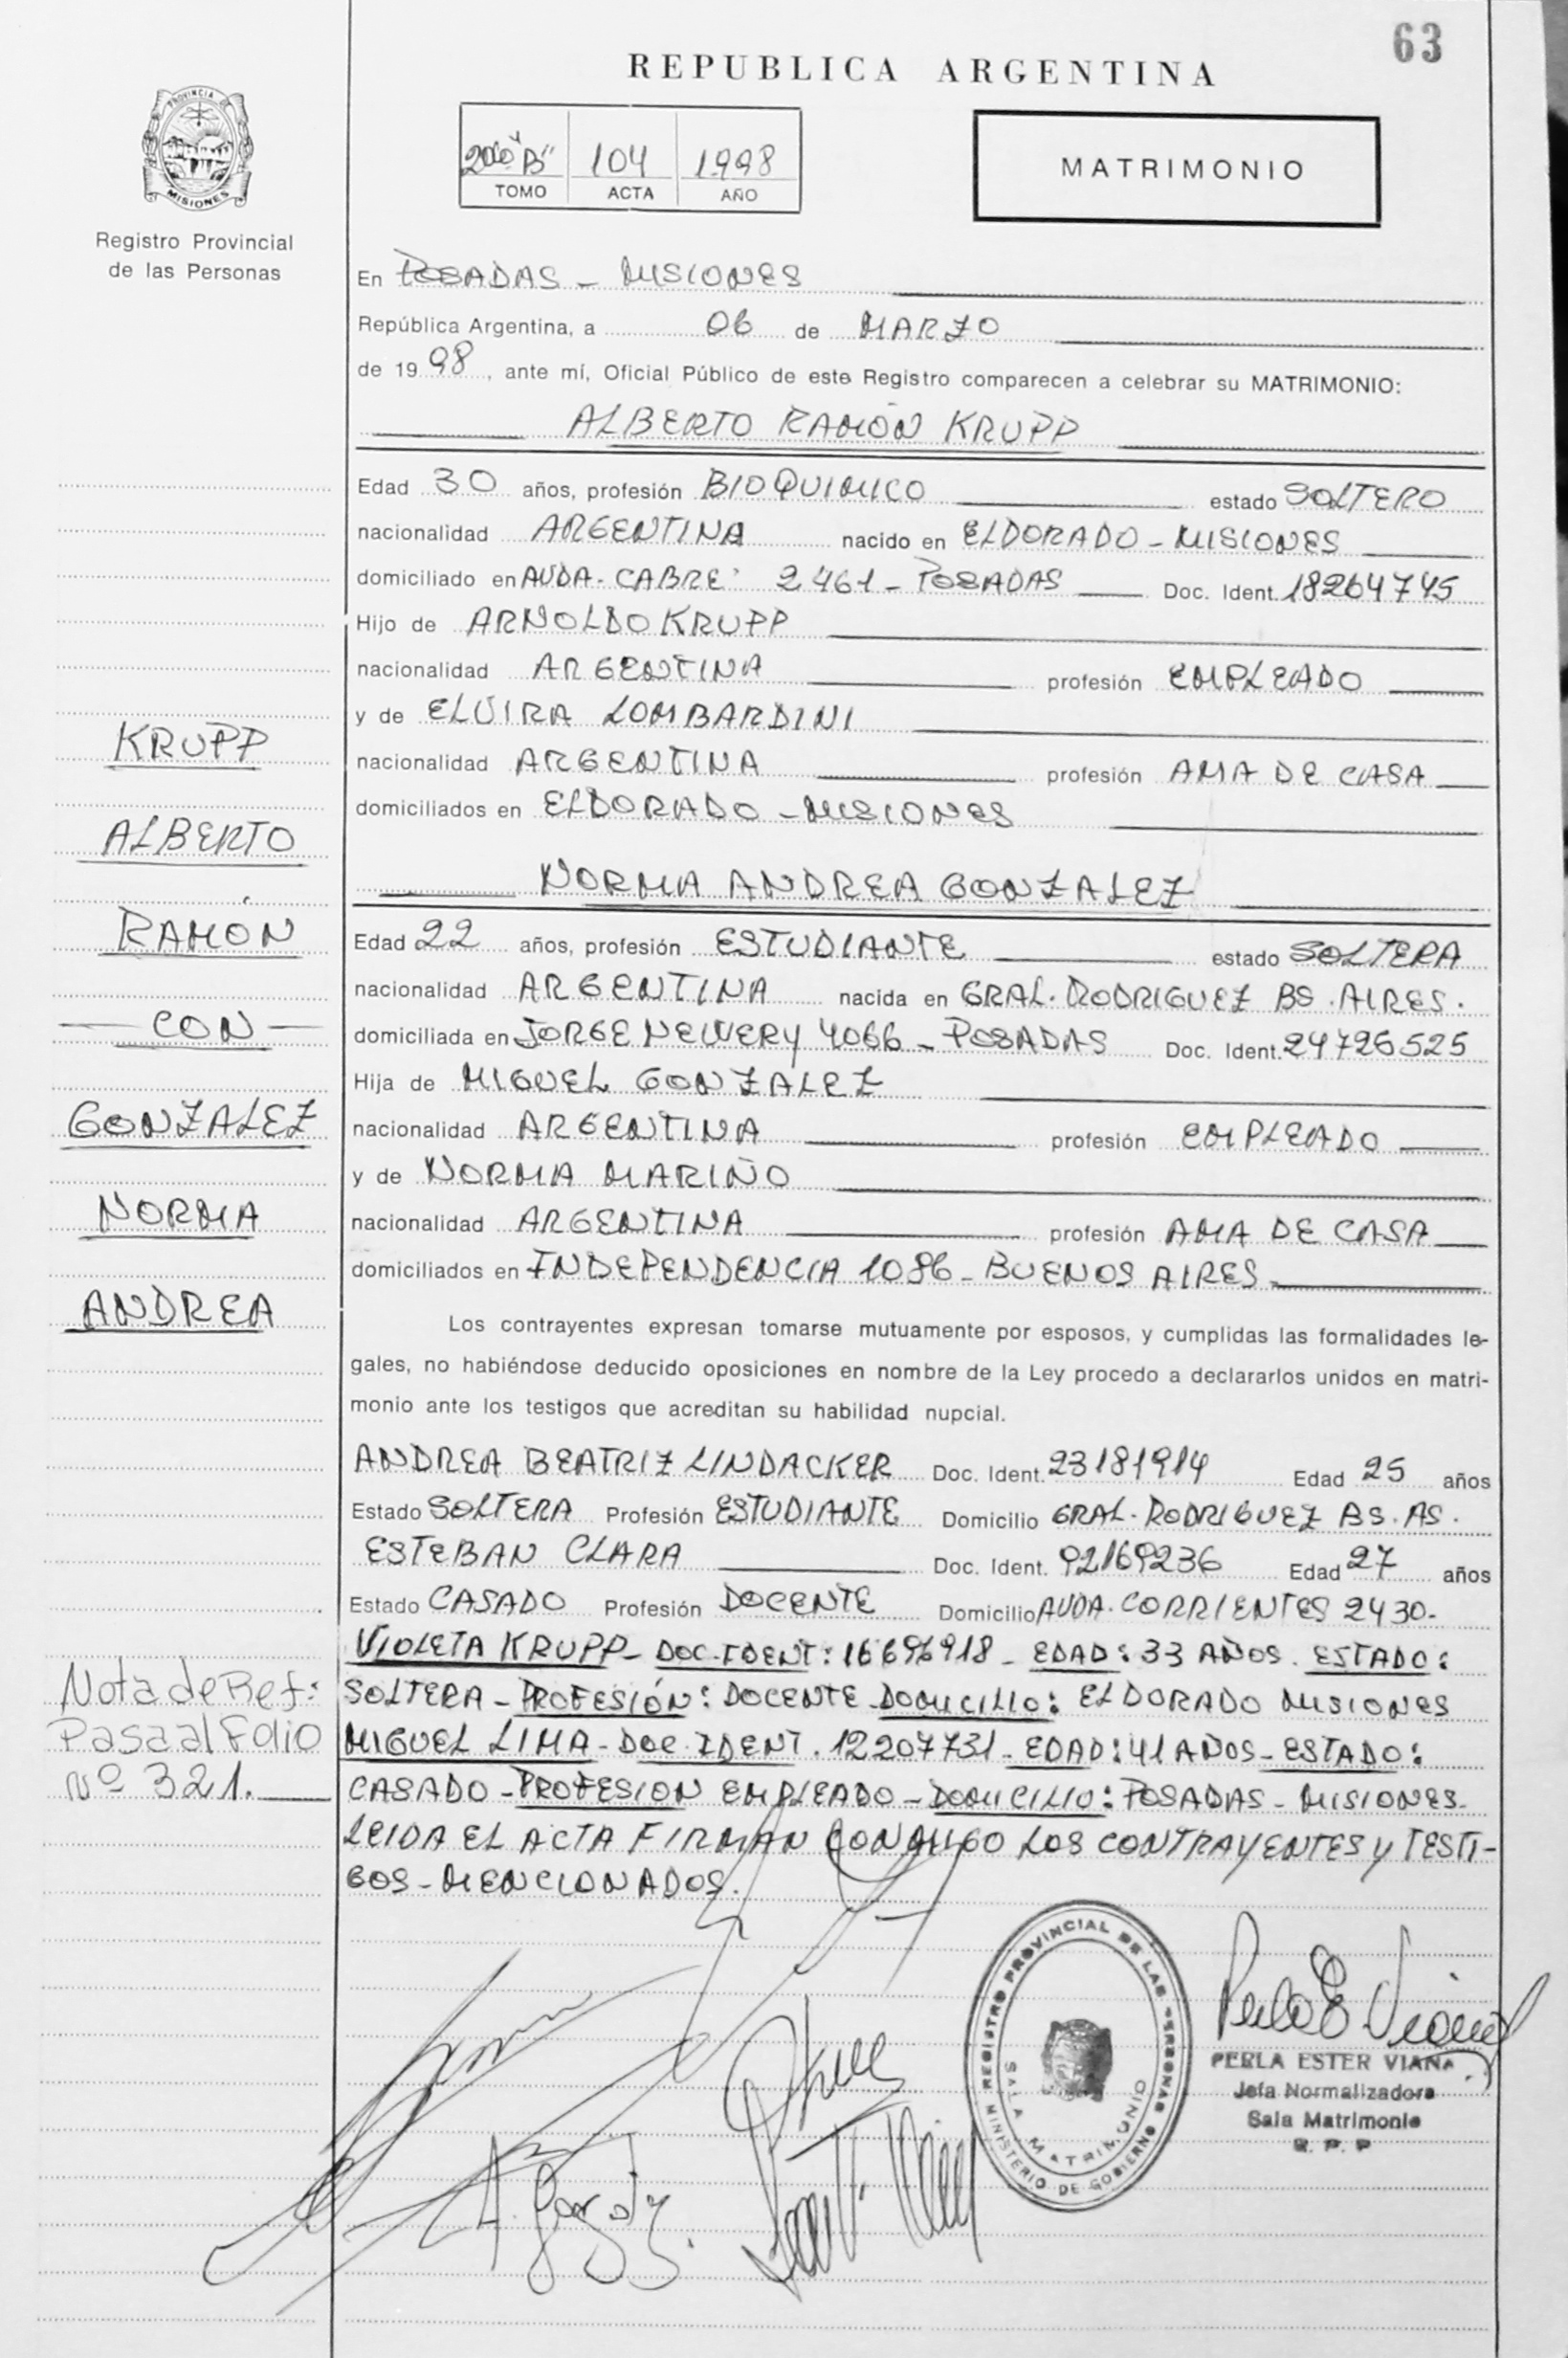 63
REPUBLICA ARGENTINA
PROVINCIA
MISIONES
Registro Provincial
de las Personas
"B" 104 1998
TOMO ACTA AÑO
MATRIMONIO
En POSADAS - MISIONES
República Argentina, a 06 de MARZO
de 19 98, ante mí, Oficial Público de este Registro comparecen a celebrar su MATRIMONIO:
ALBERTO RAMÓN KRUPP
Edad 30 años, profesión BIOQUIMICO estado SOLTERO
nacionalidad ARGENTINA nacido en ELDORADO - MISIONES
domiciliado en AVDA. CABRE: 2461 - POSADAS Doc. Ident. 18264745
Hijo de ARNOLDO KRUPP
nacionalidad ARGENTINA profesión EMPLEADO
y de ELVIRA LOMBARDINI
nacionalidad ARGENTINA profesión AMA DE CASA
domiciliados en ELDORADO - MISIONES
NORMA ANDREA GONZALEZ
Edad 22 años, profesión ESTUDIANTE estado SOLTERA
nacionalidad ARGENTINA nacida en GRAL. RODRIGUEZ BS. AIRES.
domiciliada en JORGE NEWERY 4066 - POSADAS Doc. Ident. 24726525
Hija de MIGUEL GONZALEZ
nacionalidad ARGENTINA profesión EMPLEADO
y de NORMA MARIÑO
nacionalidad ARGENTINA profesión AMA DE CASA
domiciliados en INDEPENDENCIA 1086 - BUENOS AIRES
Los contrayentes expresan tomarse mutuamente por esposos, y cumplidas las formalidades le-
gales, no habiéndose deducido oposiciones en nombre de la Ley procedo a declararlos unidos en matri-
monio ante los testigos que acreditan su habilidad nupcial.
ANDREA BEATRIZ LINDACKER Doc. Ident. 23181914 Edad 25 años
Estado SOLTERA Profesión ESTUDIANTE Domicilio GRAL. RODRIGUEZ BS. AS.
ESTEBAN CLARA Doc. Ident. 92169236 Edad 27 años
Estado CASADO Profesión DOCENTE Domicilio AVDA. CORRIENTES 2430-
VIOLETA KRUPP - DOC. IDENT: 16696918 - EDAD: 33 AÑOS. ESTADO:
SOLTERA - PROFESIÓN: DOCENTE DOMICILIO: ELDORADO MISIONES
MIGUEL LIMA - DOC. IDENT. 12207731 - EDAD: 41 AÑOS - ESTADO:
CASADO - PROFESION EMPLEADO - DOMICILIO: POSADAS - MISIONES-
LEIDA EL ACTA FIRMAN CONMIGO LOS CONTRAYENTES Y TESTI-
GOS - MENCIONADOS.
KRUPP
ALBERTO
RAMÓN
- CON -
GONZALEZ
NORMA
ANDREA
Nota de Ref:
Pasa al Folio
Nº 321.
REGISTRO PROVINCIAL DE LAS PERSONAS
MINISTERIO DE GOBIERNO
SALA MATRIMONIO
Perla E Viana
PERLA ESTER VIANA
Jefa Normalizadora
Sala Matrimonio
R. P. P